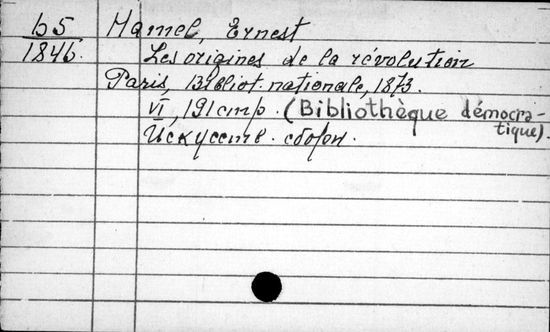 b5 Hamel, Ernest
1846. Les origines de la révolution
Paris, Bibliot. nationale, 1873.
VI, 191 стр. (Bibliothèque démocra-
tique).
Искусств. сборн.